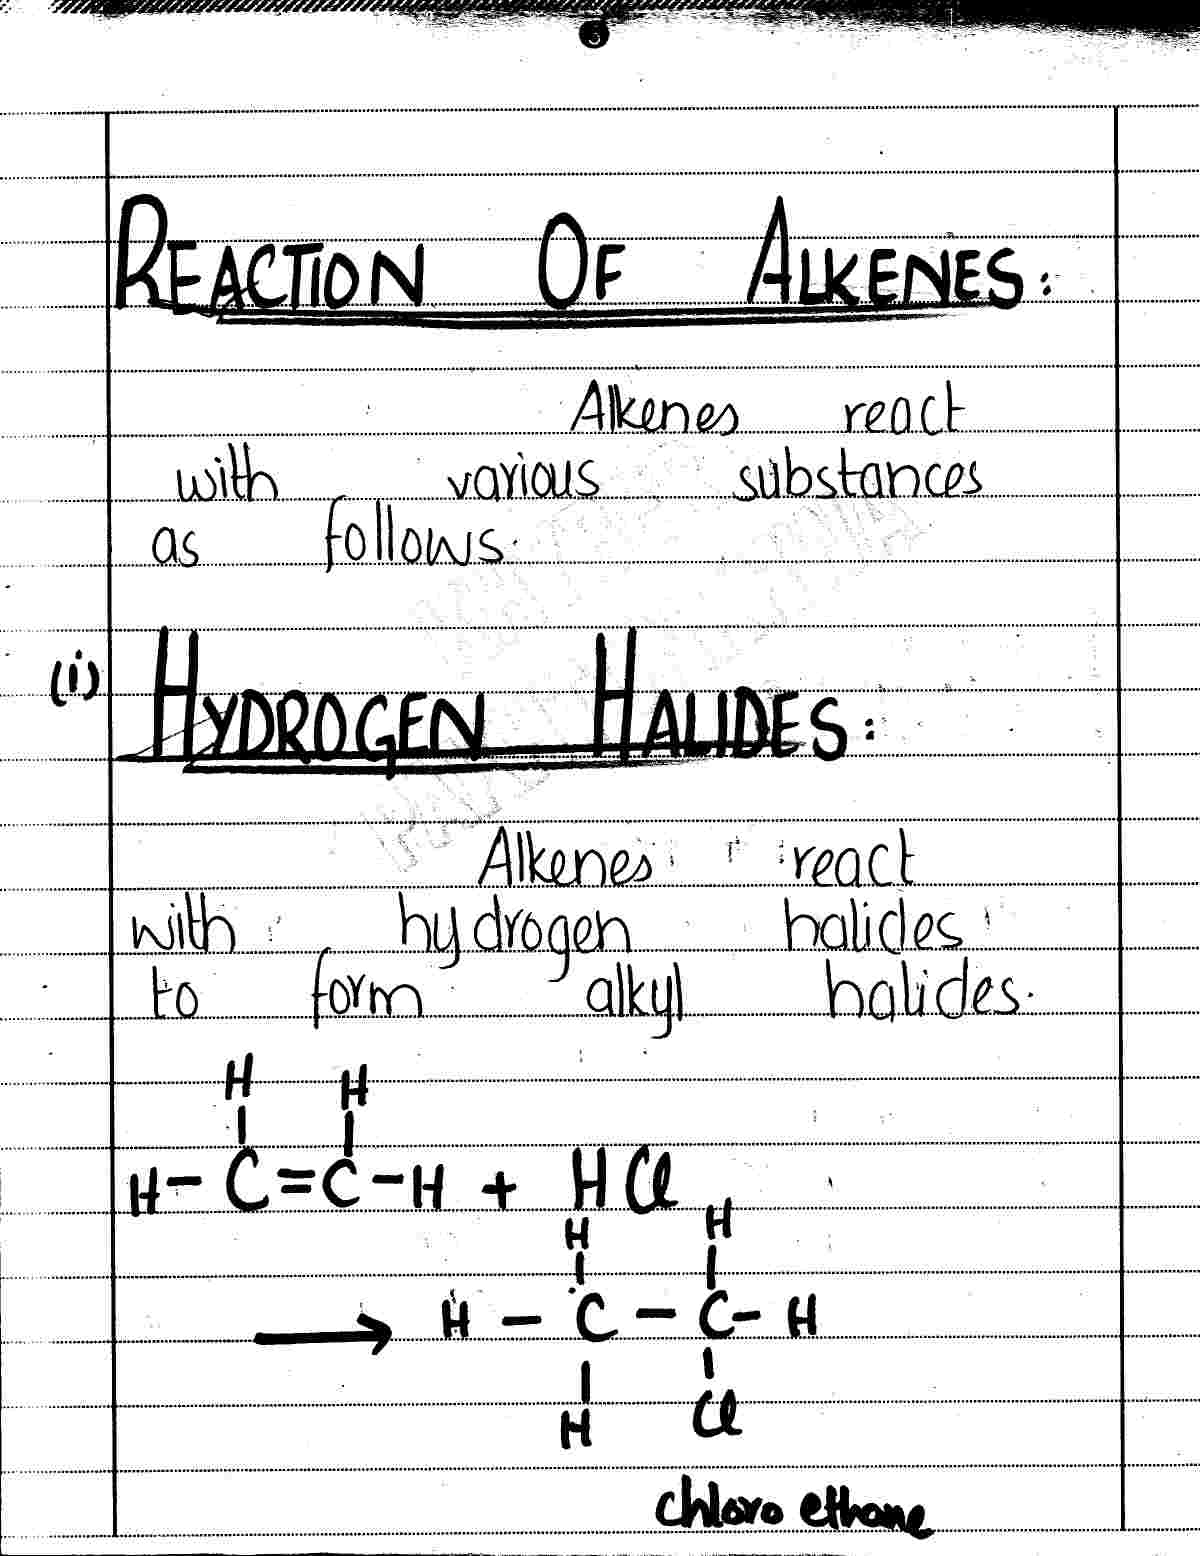 REACTION OF ALKENES:
Alkenes react
with various substances
as follows.
(i) HYDROGEN HALIDES:
Alkenes react
with hydrogen halides
to form alkyl halides.
H H
| |
H - C = C - H + HCl
H H
| |
→ H - C - C - H
| |
H Cl
chloro ethane